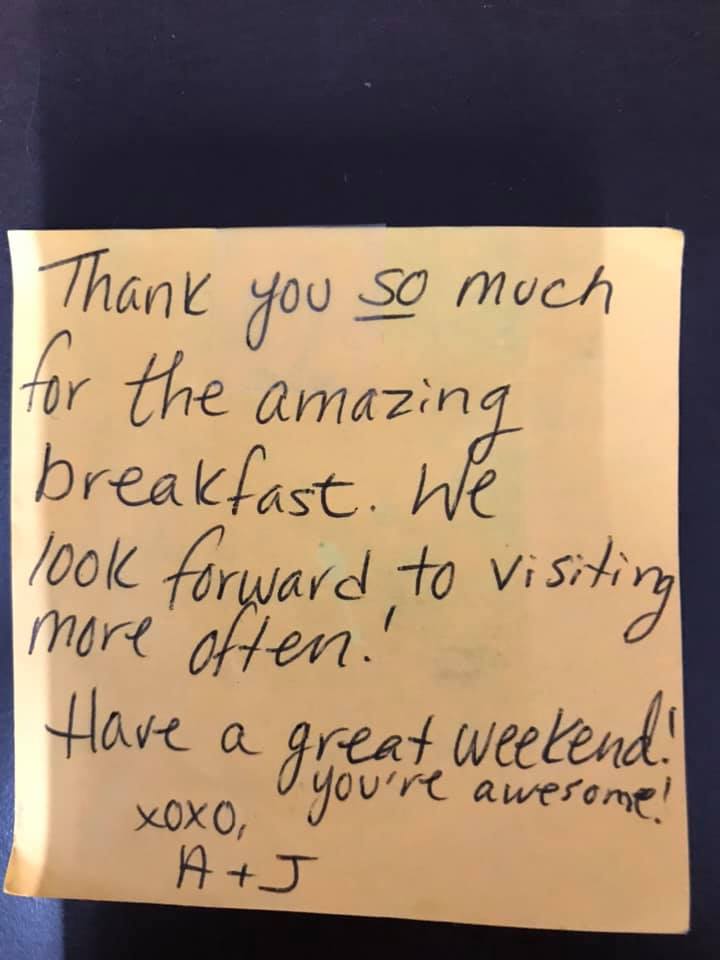 Thank you so much
for the amazing
breakfast. We
look forward to visiting
more often!
Have a great weekend!
you're awesome!
xoxo,
A + J